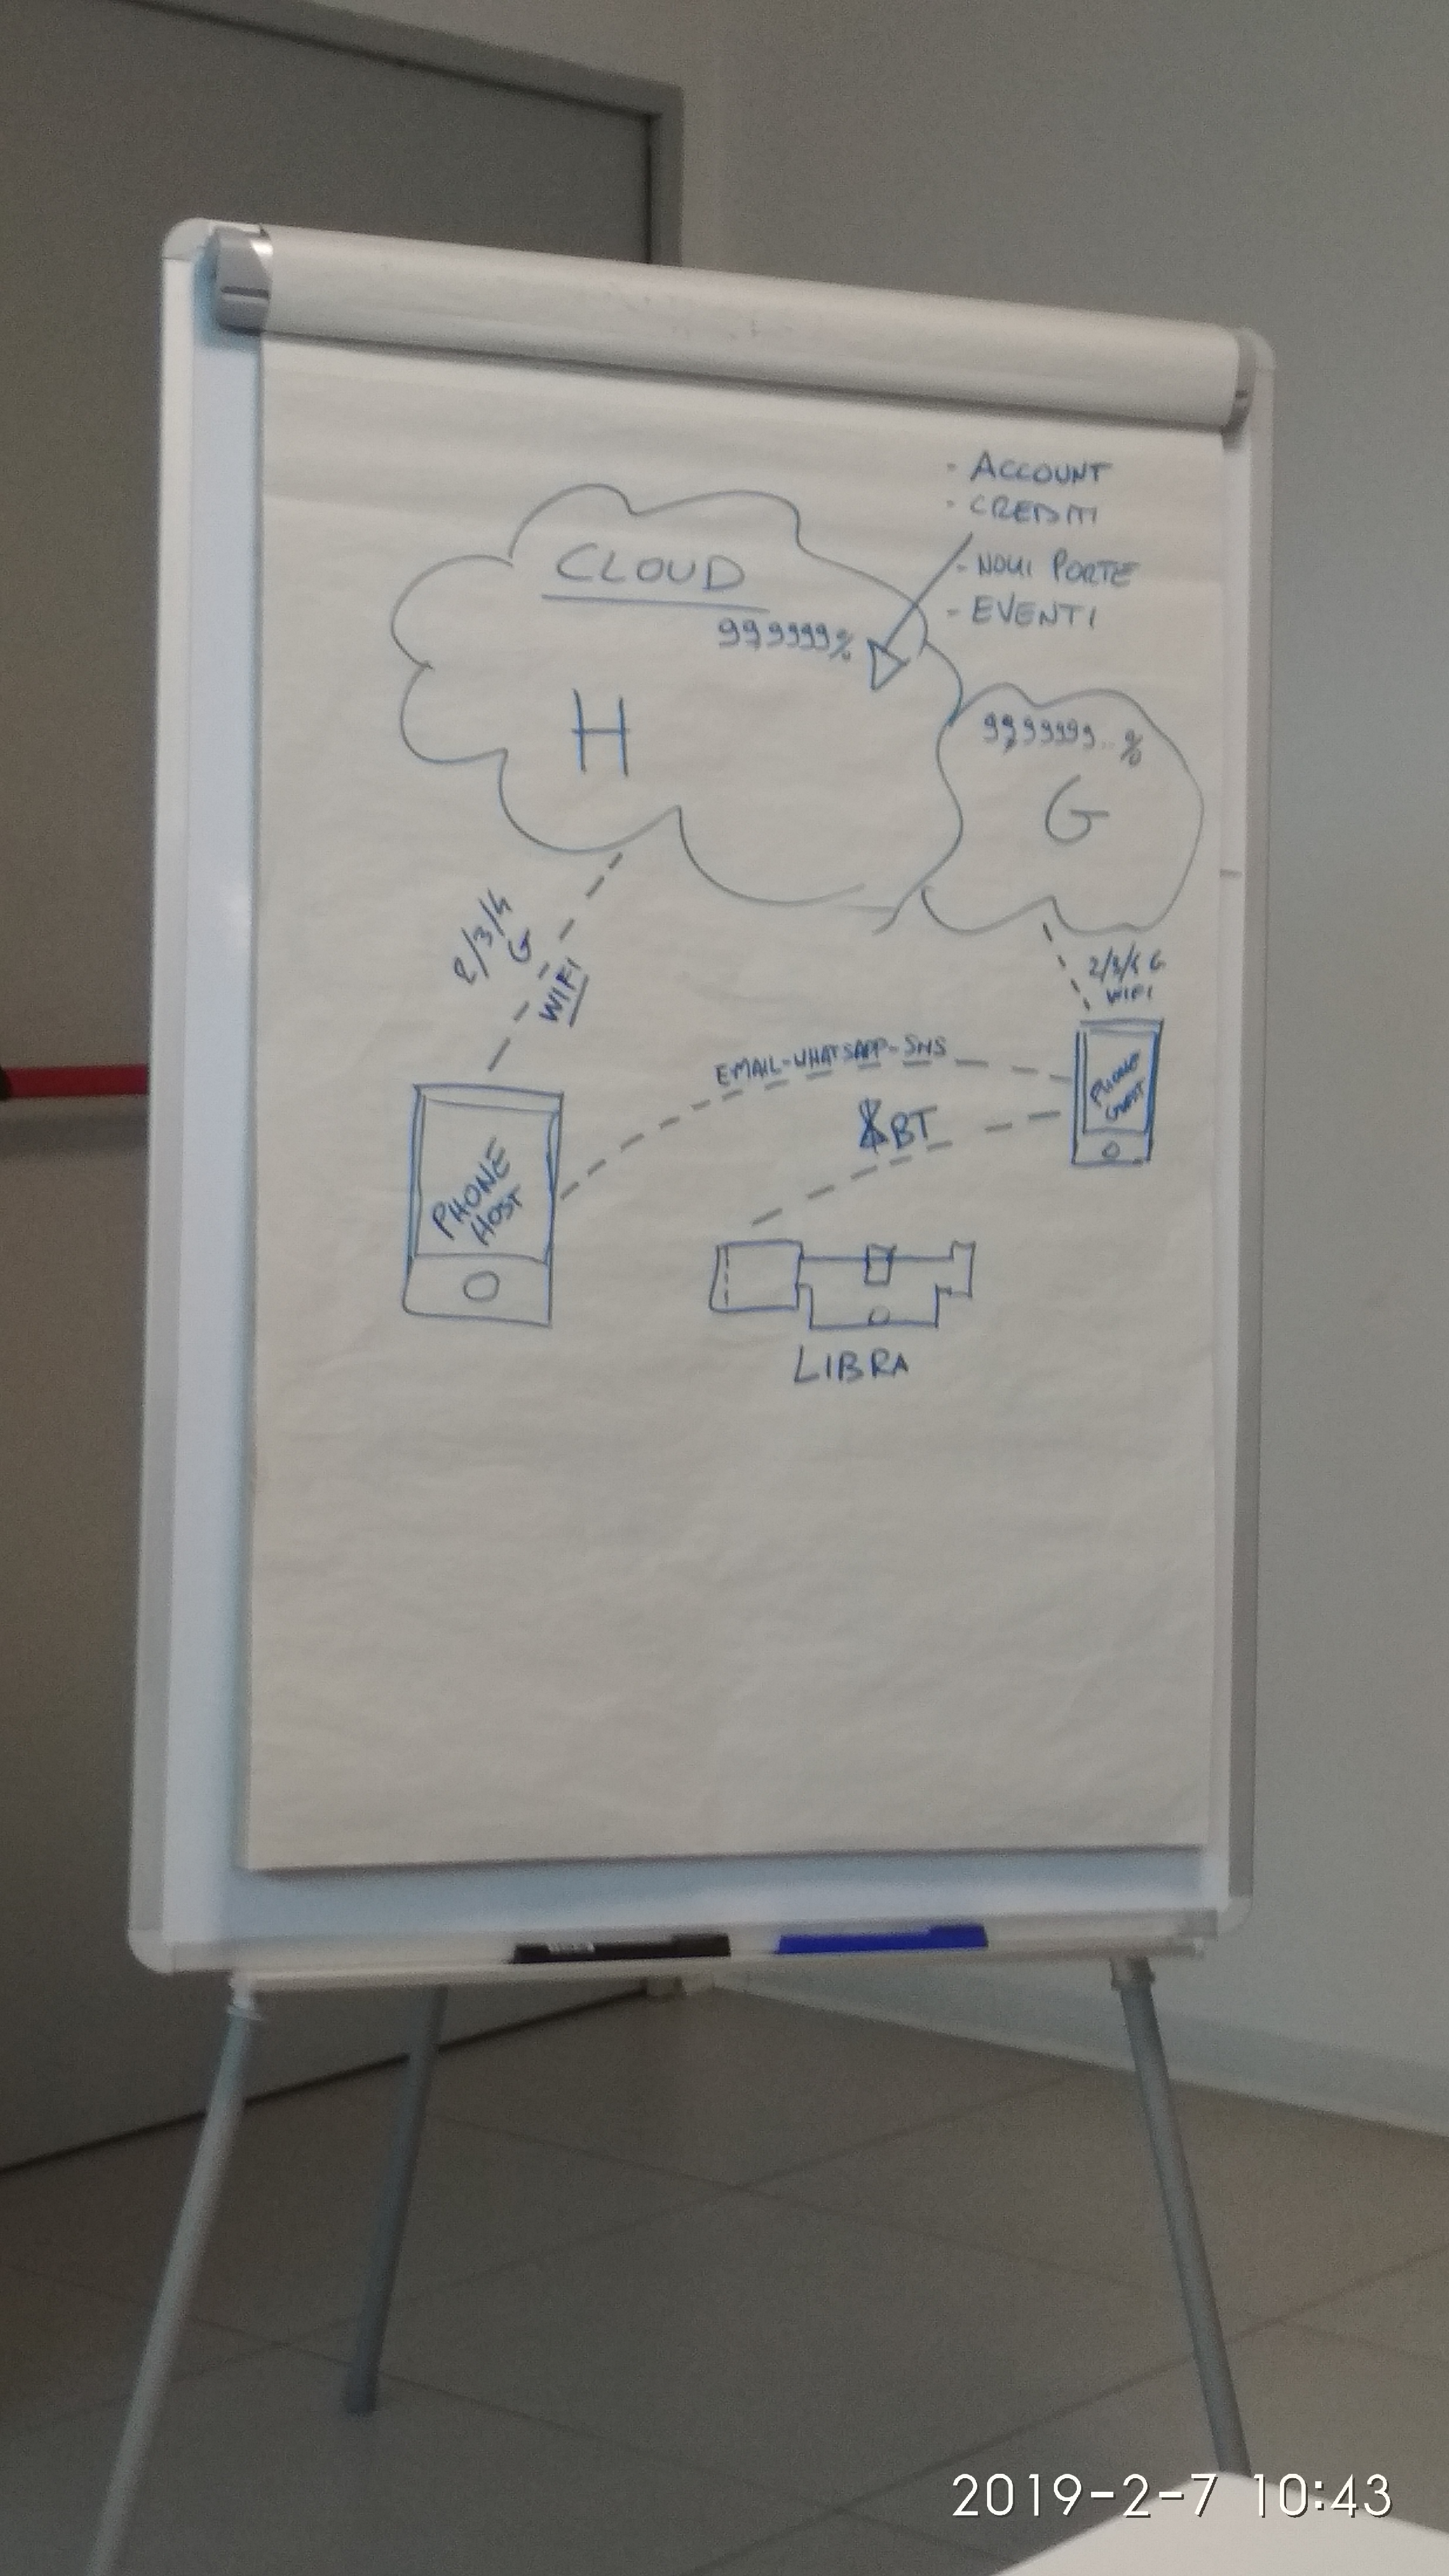 - ACCOUNT
- CREDITI
- NOMI PORTE
- EVENTI
CLOUD
99,9999%
H
99,99999...%
G
2/3/4
G
WIFI
2/3/4 G
WIFI
EMAIL-WHATSAPP-SMS
BT
PHONE
GUEST
PHONE
HOST
LIBRA
2019-2-7 10:43